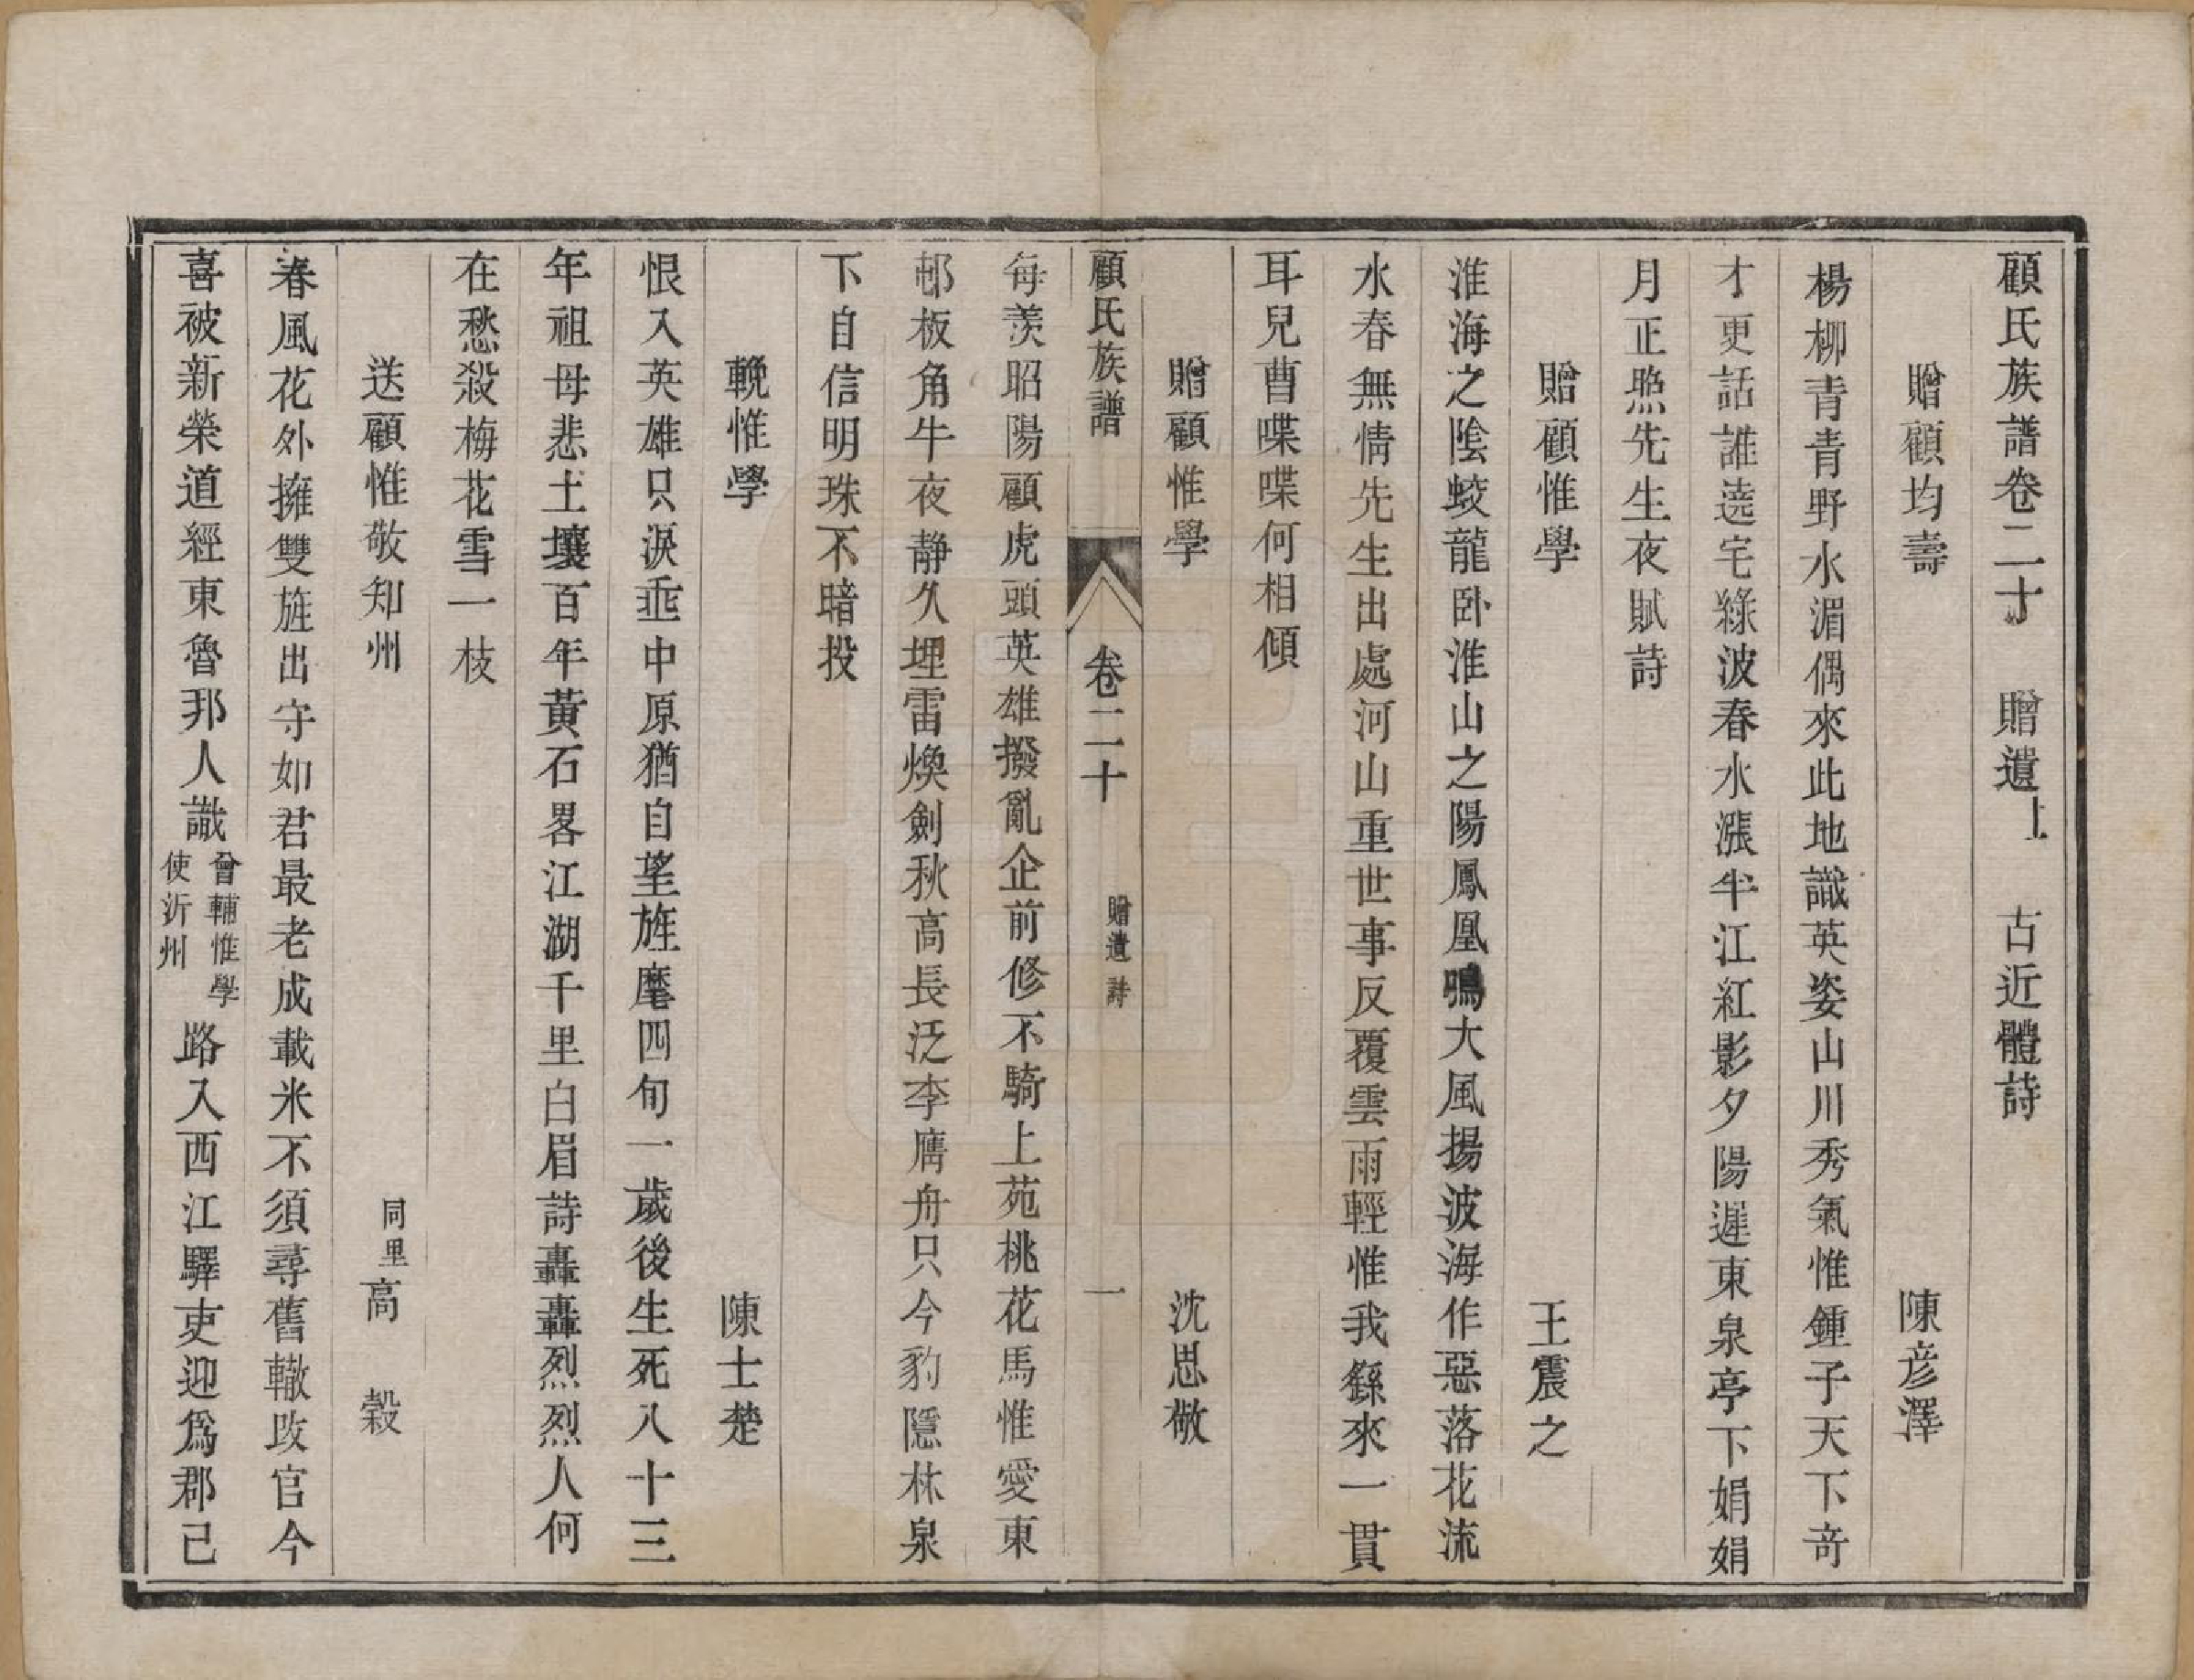 顧氏族譜卷二十　贈遺上　古近體詩
贈顧均壽　陳彦澤
楊柳青青野水湄偶來此地識英姿山川秀氣惟鍾子天下奇
才更話誰遶宅綠波春水漲半江紅影夕陽遲東泉亭下娟娟
月正照先生夜賦詩
贈顧惟學　王震之
淮海之陰蛟龍卧淮山之陽鳳凰鳴大風揚波海作惡落花流
水春無情先生出處河山重世事反覆雲雨輕惟我繇來一貫
耳兒曹喋喋何相傾
贈顧惟學　沈思敬
顧氏族譜　卷二十　贈遺　詩　一
每羨昭陽顧虎頭英雄撥亂企前修不騎上苑桃花馬惟愛東
邨板角牛夜静久埋雷煥劍秋高長泛李膺舟只今豹隱林泉
下自信明珠不暗投
輓惟學　陳士楚
恨入英雄只淚垂中原猶自望旌麾四旬一歲後生死八十三
年祖母悲土壤百年黃石畧江湖千里白眉詩轟轟烈烈人何
在愁殺梅花雪一枝
送顧惟敬知州　同里高　穀
春風花外擁雙旌出守如君最老成載米不須尋舊轍改官今
喜被新榮道經東魯邦人識曾輔惟學使沂州路入西江驛吏迎爲郡已